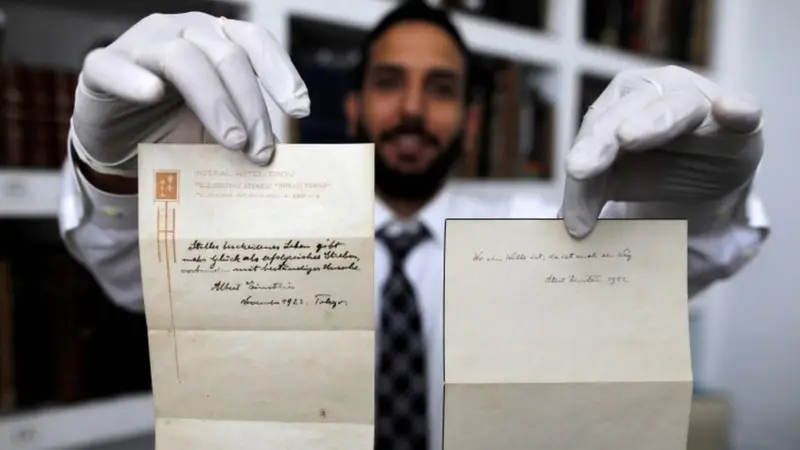 IMPERIAL HOTEL TOKYO
Stilles bescheidenes Leben gibt
mehr Glück als erfolgreiches Streben,
verbunden mit beständiger Unruhe.
Albert Einstein
November 1922. Tokyo.
Wo ein Wille ist, da ist auch ein Weg
Albert Einstein. 1922